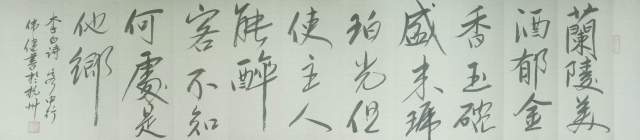 蘭陵美
酒郁金
香玉碗
盛来琥
珀光但
使主人
能醉
客不知
何處是
他鄉
李白诗 客中行
書於杭州